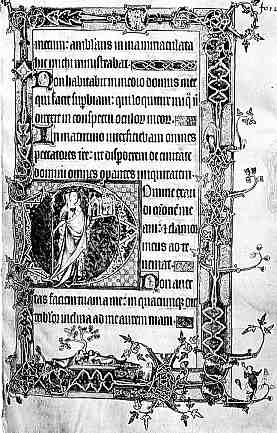 mecum: ambulans in via inmaculata
hic michi ministrabat.
Non habitabit in medio domus mee
qui facit supbiam: qui loquitur
direxit in conspectu oculoꝝ meoꝝ.
In matutino interficiebam omnes
peccatores tr̄e: ut disperdem de civitate
domini omnes opantes iniquitatem
Domine exau
di or̄onem me
am: et clamor
meus ad te
veniat.
Non aver
tas faciem tuam a me: in quacumque
tribulor inclina ad me aurem tuam